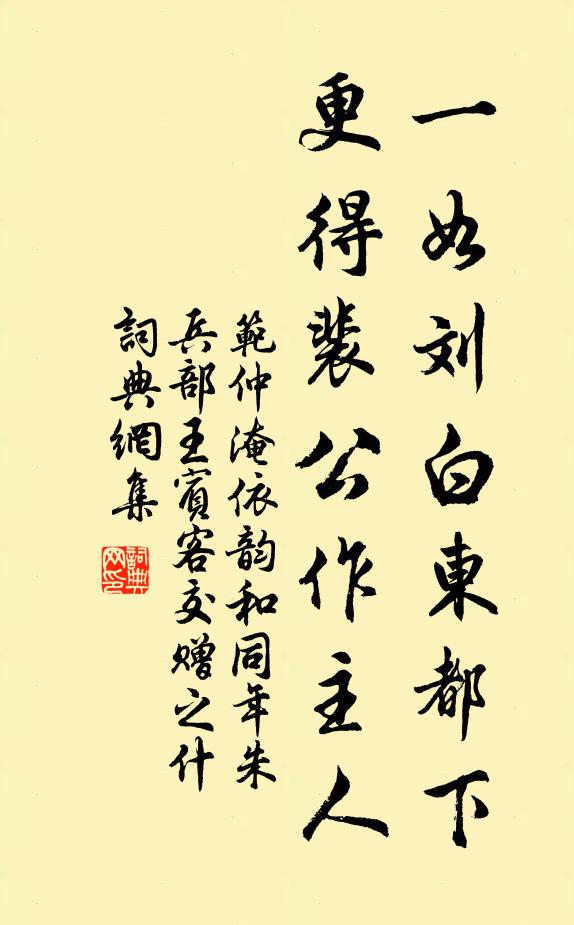 一如刘白東都下
更得裴公作主人
範仲淹依韵和同年朱
兵部王賓客交赠之什
詞典網集
詞典
网印